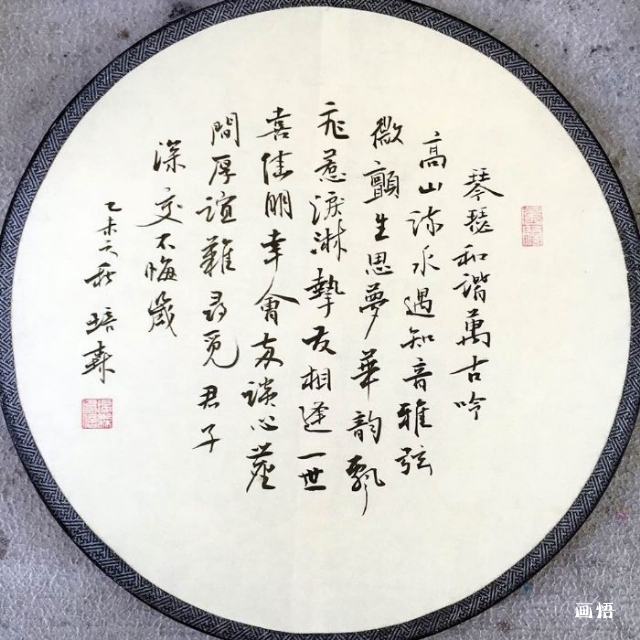 琴瑟和谐萬古吟
高山流水遇知音雅弦
微顫生思夢華韵飘
飛惹淚淋摯友相逢一世
喜佳朋幸會談心塵
間厚誼難尋覓君子
深交不悔歲
乙未之秋 培森
画悟